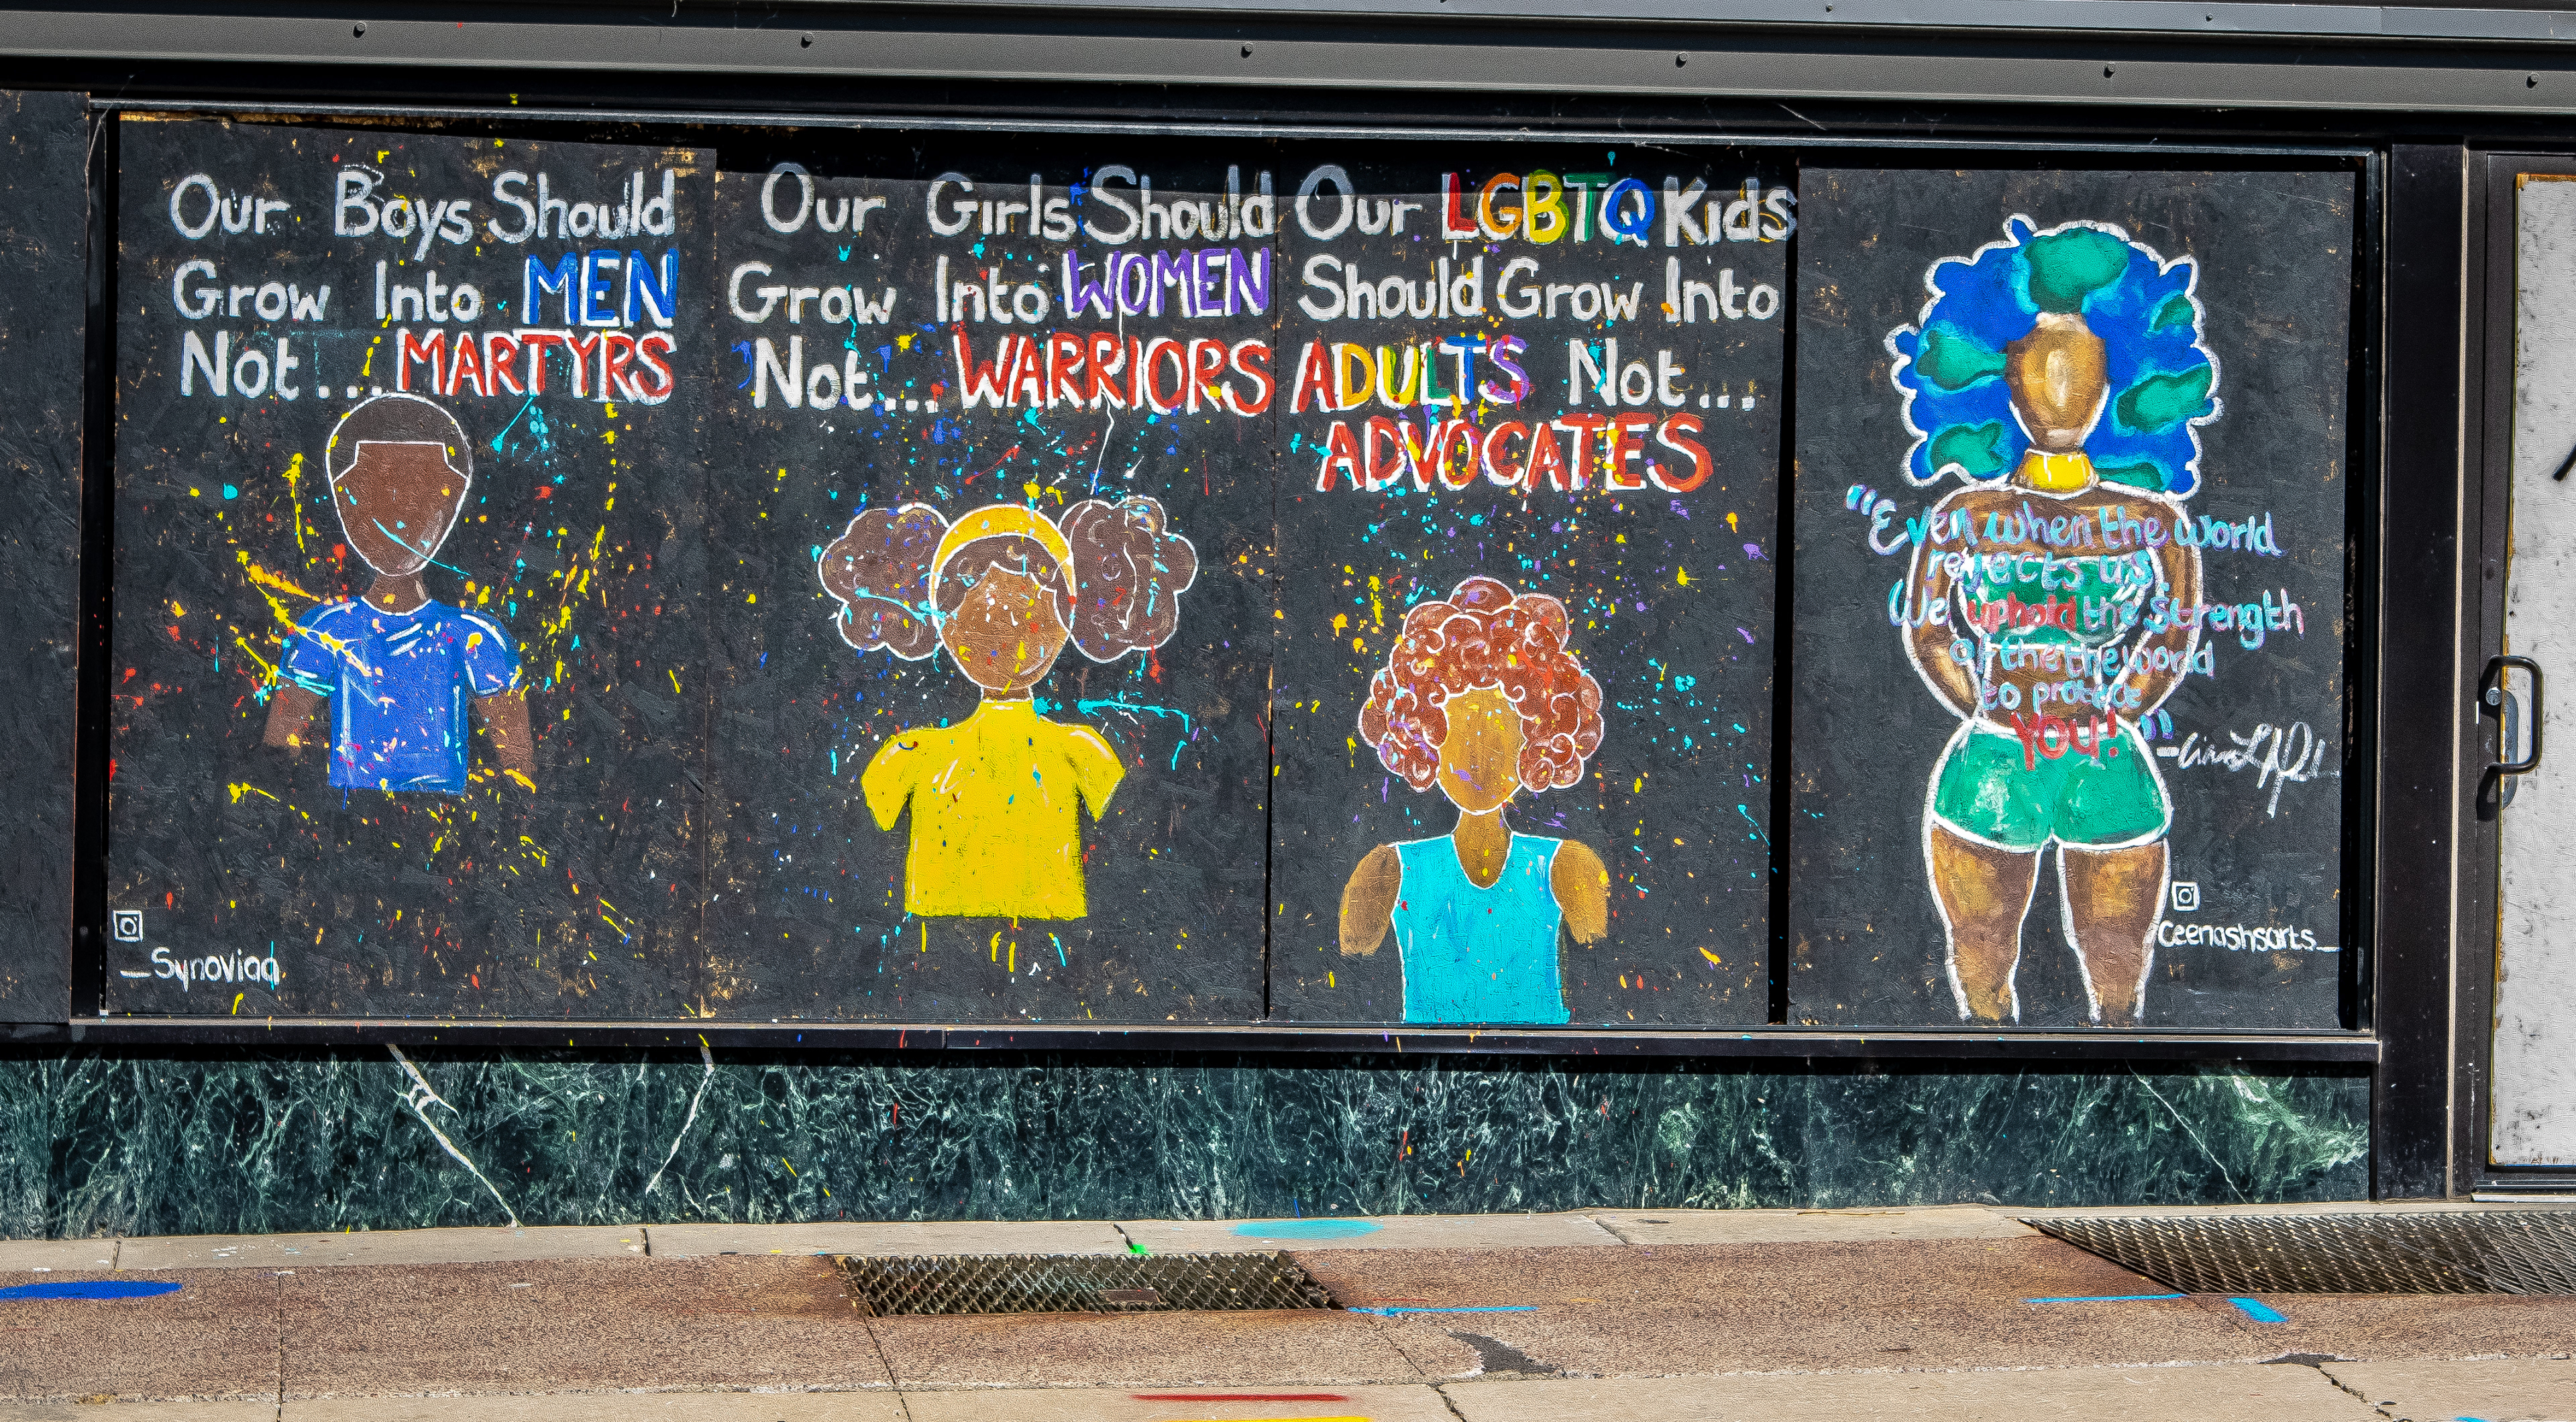 Our Boys Should
Grow Into MEN
Not...MARTYRS
_Synoviaa
Our Girls Should
Grow Into WOMEN
Not... WARRIORS
Our LGBTQ Kids
Should Grow Into
ADULTS Not...
ADVOCATES
"Even when the world
rejects us,
We uphold the Strength
of the the world
to protect
YOU!"
Ceenashsarts_